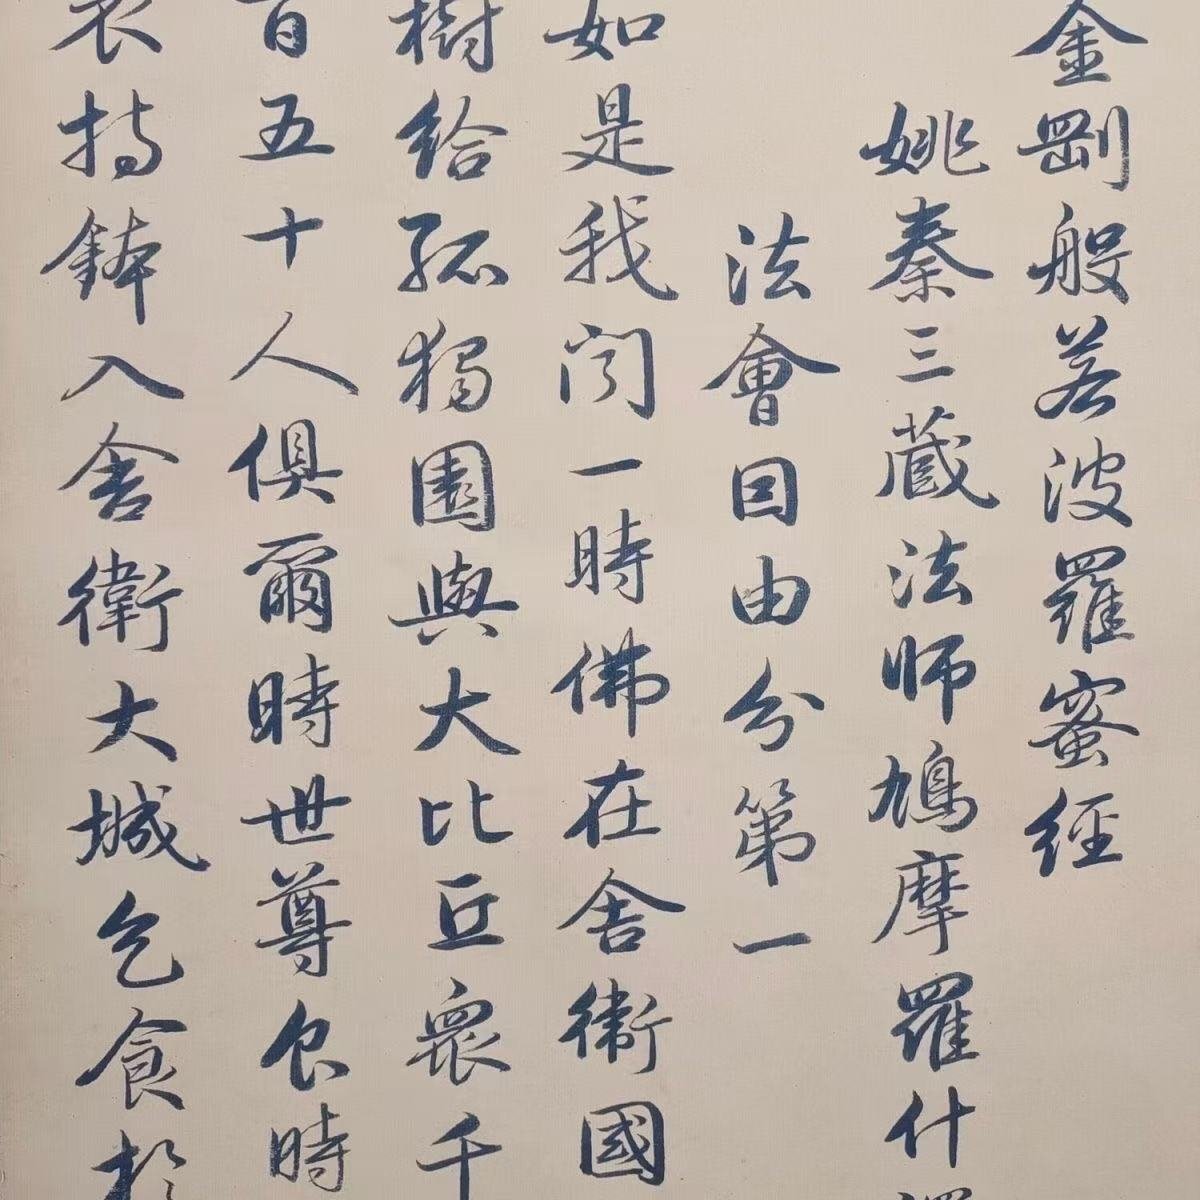 金剛般若波羅蜜經
姚秦三藏法師鳩摩羅什譯
法會因由分第一
如是我聞一時佛在舍衛國
樹給孤獨園與大比丘衆千
百五十人俱爾時世尊食時
衣持鉢入舍衛大城乞食於